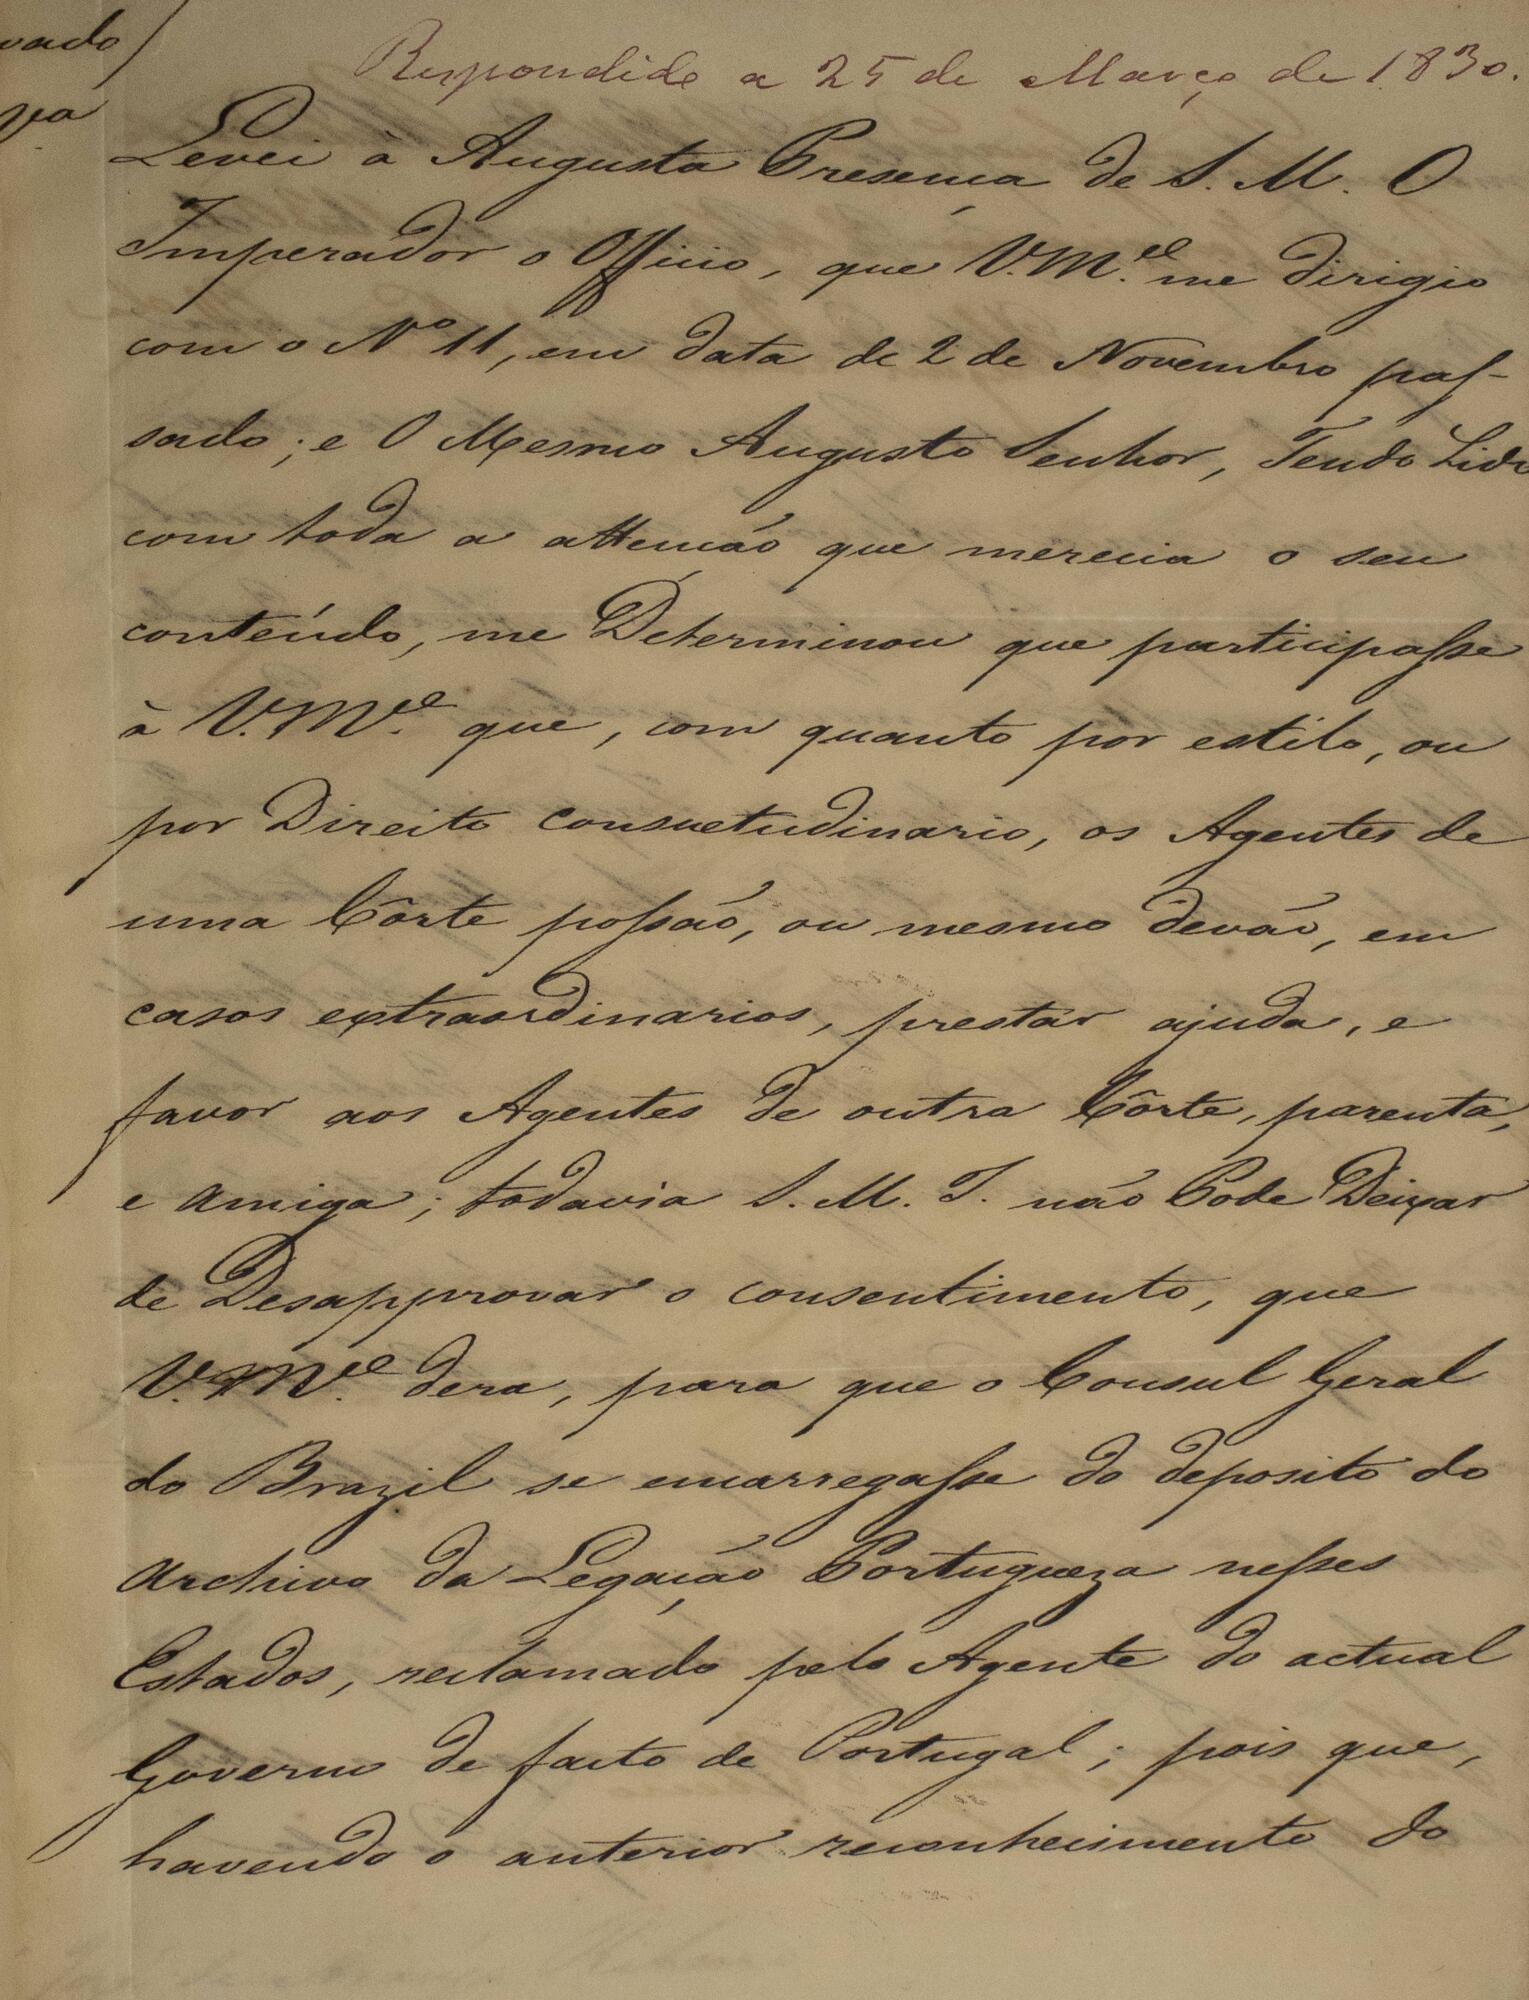 vado
va
Respondido a 25 de Março de 1830.
Levei à Augusta Presença de S. M. O
Imperador o Officio, que V. M.ce me dirigio
com o Nº 11, em data de 2 de Novembro pas-
sado; e O Mesmo Augusto Senhor, Tendo Lido
com toda a attenção que merecia o seu
conteúdo, me Determinou que participasse
à V. M.ce que, com quanto por estilo, ou
por Direito consuetudinario, os Agentes de
uma Côrte possão, ou mesmo devão, em
casos extraordinarios, prestar ajuda, e
favor aos Agentes de outra Côrte, parenta,
e amiga; todavia S. M. I. não Pode Deixar
de Desapprovar o consentimento, que
V. M.ce dera, para que o Consul Geral
do Brazil se encarregasse do deposito do
Archivo da Legação Portugueza nesses
Estados, reclamado pelo Agente do actual
Governo de facto de Portugal; pois que,
havendo o anterior reconhecimento do